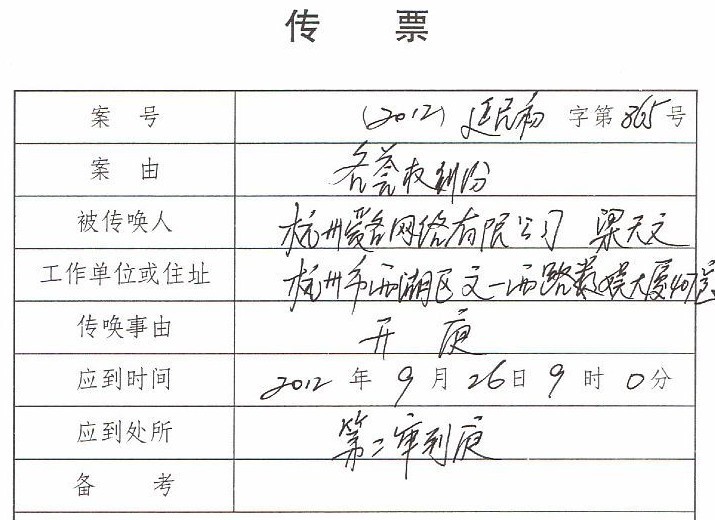 传 票
案 号 (2012) 延民初 字第 865 号
案 由 名誉权纠纷
被传唤人 杭州爱名网络有限公司 梁天文
工作单位或住址 杭州市西湖区文一西路 大厦407室
传唤事由 开 庭
应到时间 2012 年 9 月 26 日 9 时 0 分
应到处所 第二审判庭
备 考